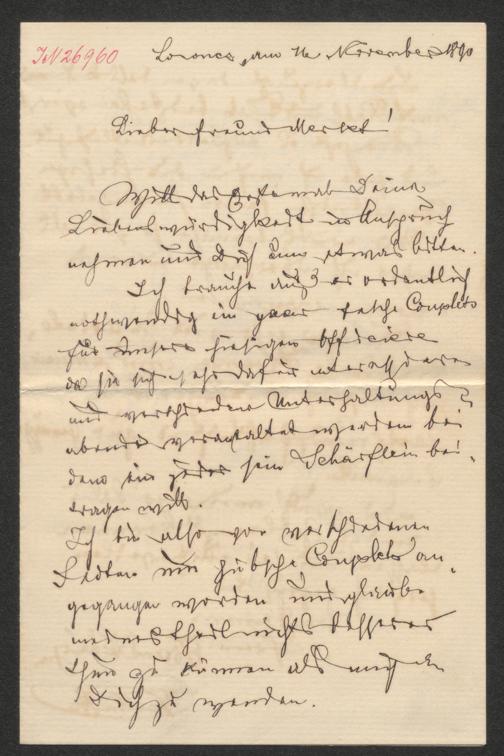 IN 26960
Losoncz, am 16 November 1890
Lieber Freund Merkt!
Will das Erstemal Deine
Liebenswürdigkeit in Anspruch
nehmen und Dich um etwas bitten.
Ich brauche außerordentlich
nothwendig ein paar fesche Couplets
für unsere hiesigen Officiere
da sie sich sehr dafür interessieren
und verschiedene Unterhaltungs
abende veranstaltet werden bei
denen ein jeder sein Schärflein bei-
tragen will.
Ich bin also von verschiedenen
Seiten um hübsche Couplets an-
gegangen worden und glaube
meinestheils nichts besseres
thun zu können als mich an
Dich zu wenden.